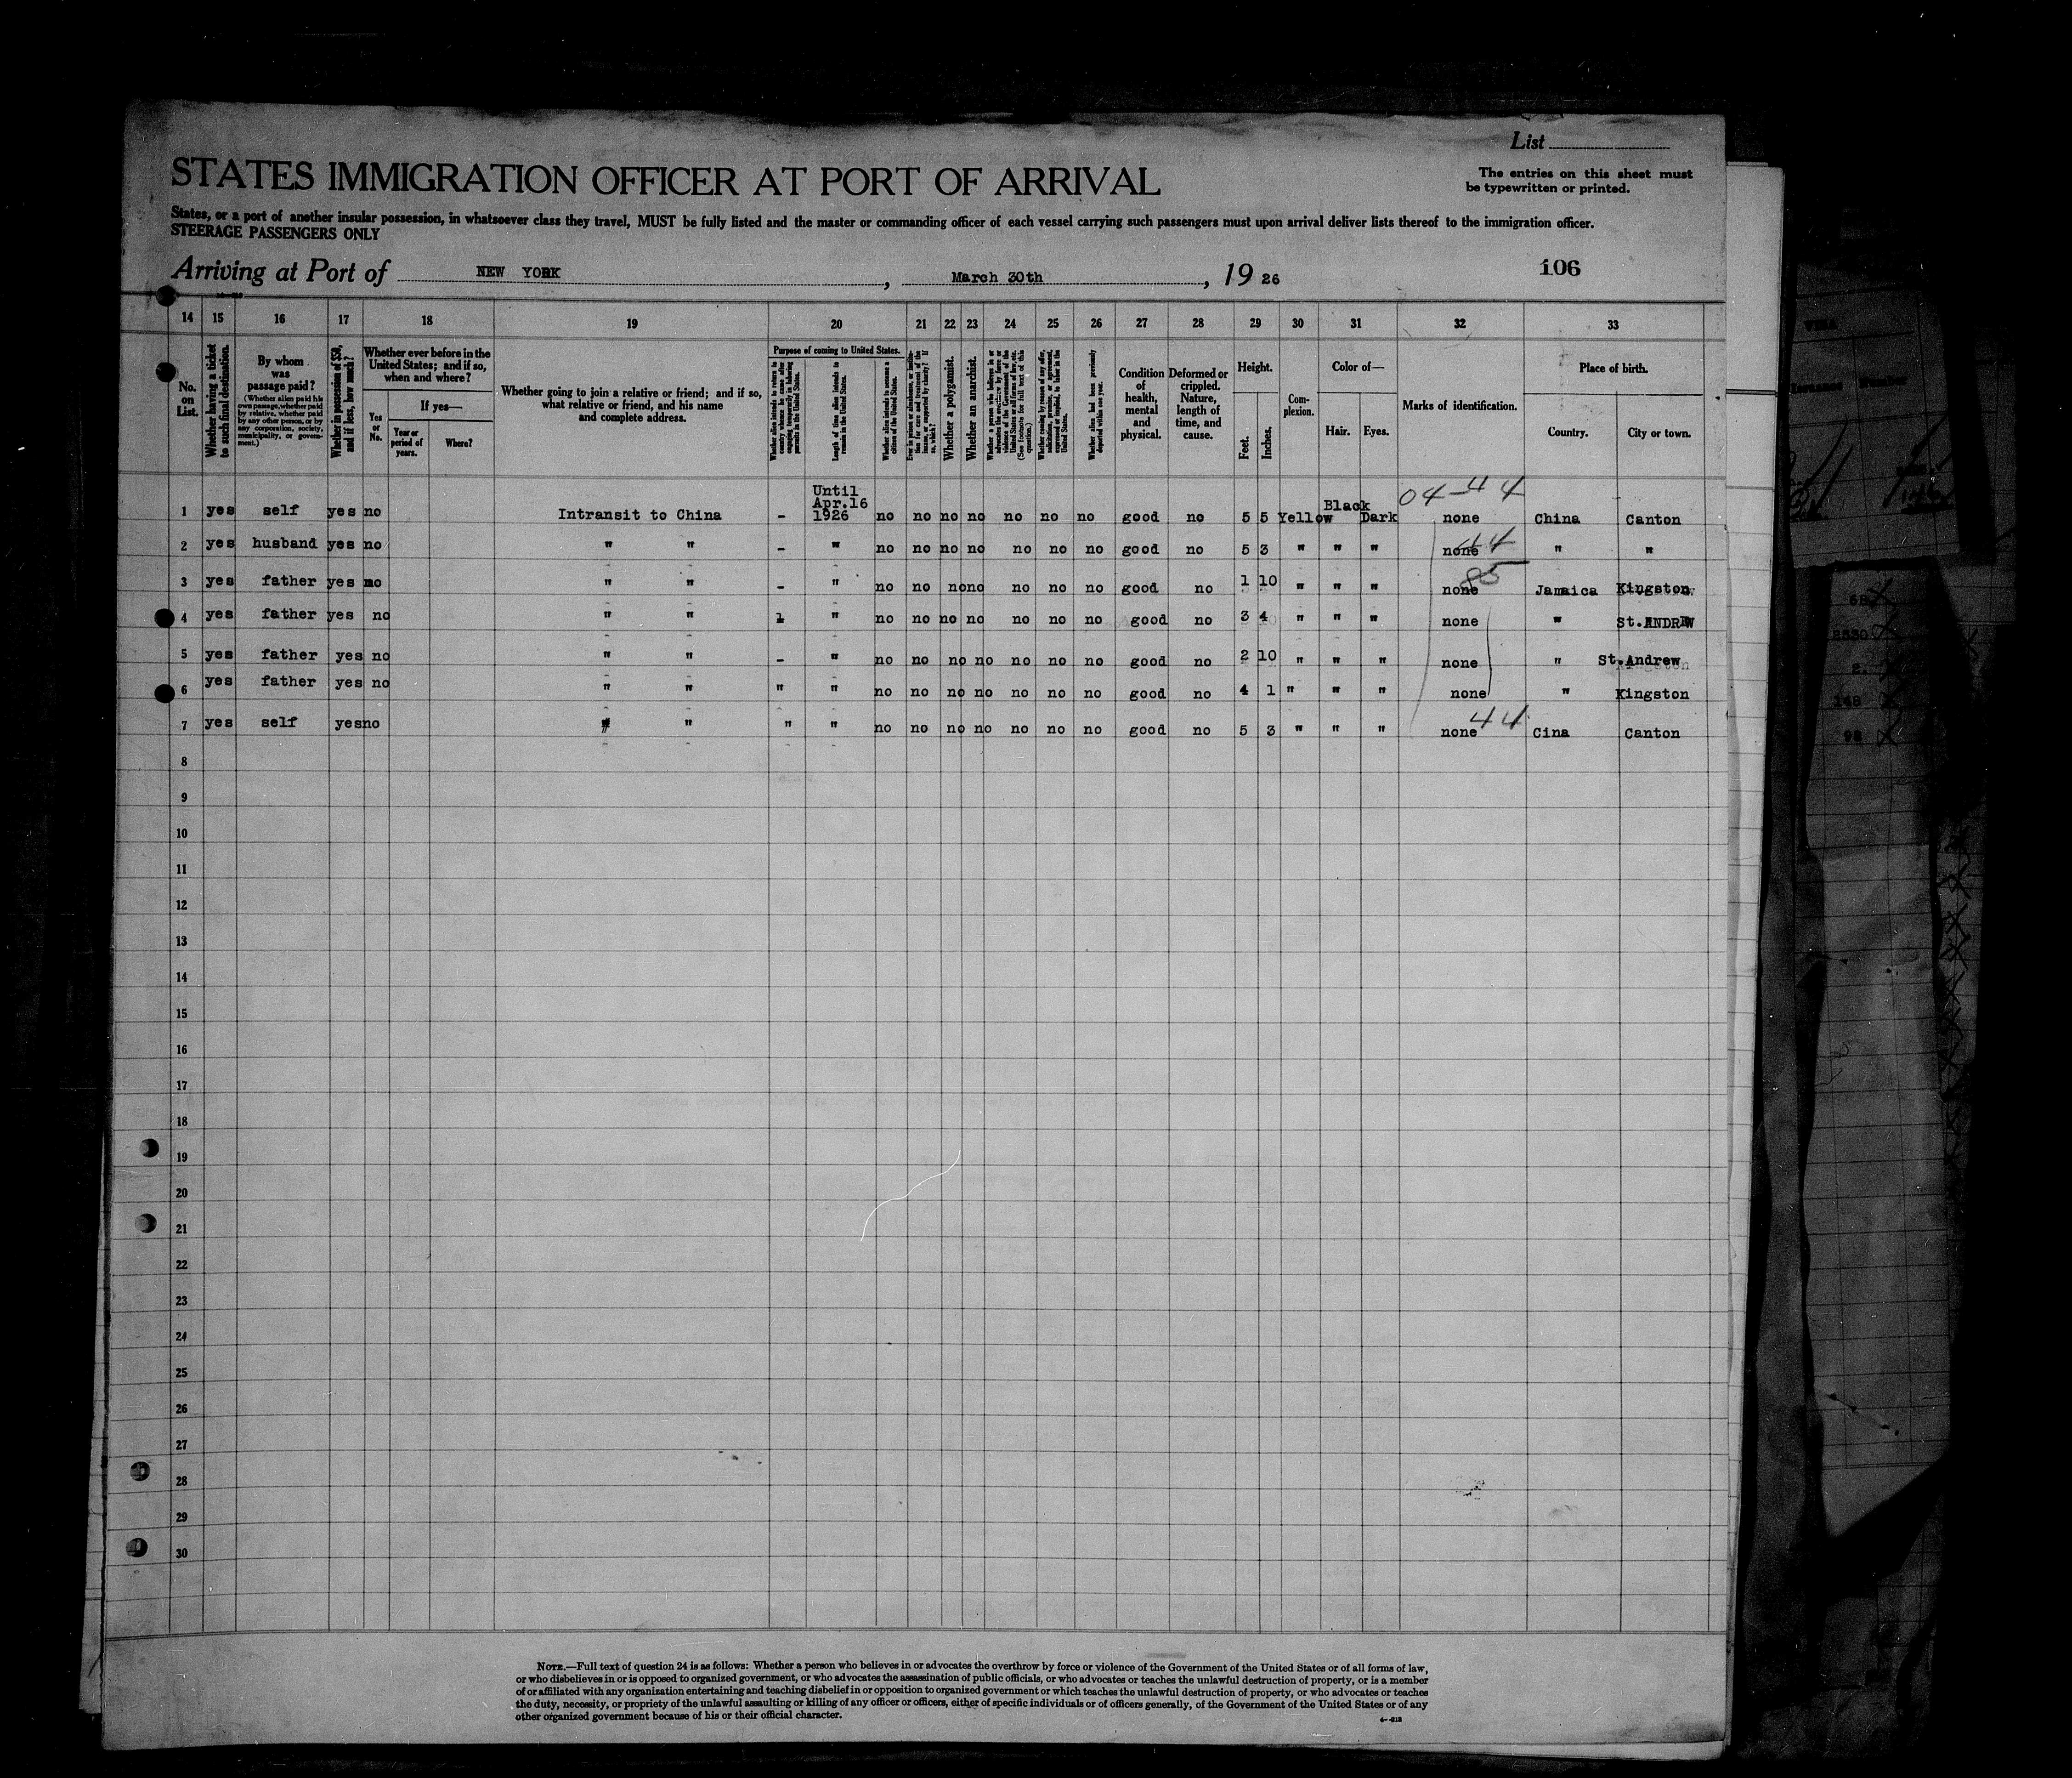 List
STATES IMMIGRATION OFFICER AT PORT OF ARRIVAL
The entries on this sheet must
be typewritten or printed.
States, or a port of another insular possession, in whatsoever class they travel, MUST be fully listed and the master or commanding officer of each vessel carrying such passengers must upon arrival deliver lists thereof to the immigration officer.
STEERAGE PASSENGERS ONLY
Arriving at Port of NEW YORK, March 30th, 19 26
106
14 15 16 17 18 19 20 21 22 23 24 25 26 27 28 29 30 31 32 33
No. on List.
Whether having a ticket to such final destination.
By whom was passage paid?
(Whether alien paid his own passage, whether paid by relative, whether paid by any other person, or by any corporation, society, municipality, or government.)
Whether in possession of $50, and if less, how much?
Whether ever before in the United States; and if so, when and where?
Yes or No.
If yes—
Year or period of years.
Where?
Whether going to join a relative or friend; and if so, what relative or friend, and his name and complete address.
Purpose of coming to United States.
Whether alien intends to return to country whence he came after engaging temporarily in laboring pursuits in the United States.
Length of time alien intends to remain in the United States.
Whether alien intends to become a citizen of the United States.
Whether a polygamist.
Whether an anarchist.
Whether alien had been previously deported within one year.
Condition of health, mental and physical.
Deformed or crippled. Nature, length of time, and cause.
Height.
Feet.
Inches.
Complexion.
Color of—
Hair.
Eyes.
Marks of identification.
Place of birth.
Country.
City or town.
04-44
1 yes self yes no Intransit to China - Until Apr.16 1926 no no no no no no no good no 5 5 Yellow Black Dark none China Canton
2 yes husband yes no " " - " no no no no no no no good no 5 3 " " " none 44 " "
3 yes father yes no " " - " no no no no no no no good no 1 10 " " " none 85 Jamaica Kingston
4 yes father yes no " " " no no no no no no no good no 3 4 " " " none " St.ANDREW
5 yes father yes no " " - " no no no no no no no good no 2 10 " " " none " St.Andrew
6 yes father yes no " " " " no no no no no no no good no 4 1 " " " none " Kingston
7 yes self yes no " " " " no no no no no no no good no 5 3 " " " none 44 Cina Canton
8
9
10
11
12
13
14
15
16
17
18
19
20
21
22
23
24
25
26
27
28
29
30
NOTE.—Full text of question 24 is as follows: Whether a person who believes in or advocates the overthrow by force or violence of the Government of the United States or of all forms of law,
or who disbelieves in or is opposed to organized government, or who advocates the assassination of public officials, or who advocates or teaches the unlawful destruction of property, or is a member
of or affiliated with any organization entertaining and teaching disbelief in or opposition to organized government or which teaches the unlawful destruction of property, or who advocates or teaches
the duty, necessity, or propriety of the unlawful assaulting or killing of any officer or officers, either of specific individuals or of officers generally, of the Government of the United States or of any
other organized government because of his or their official character.